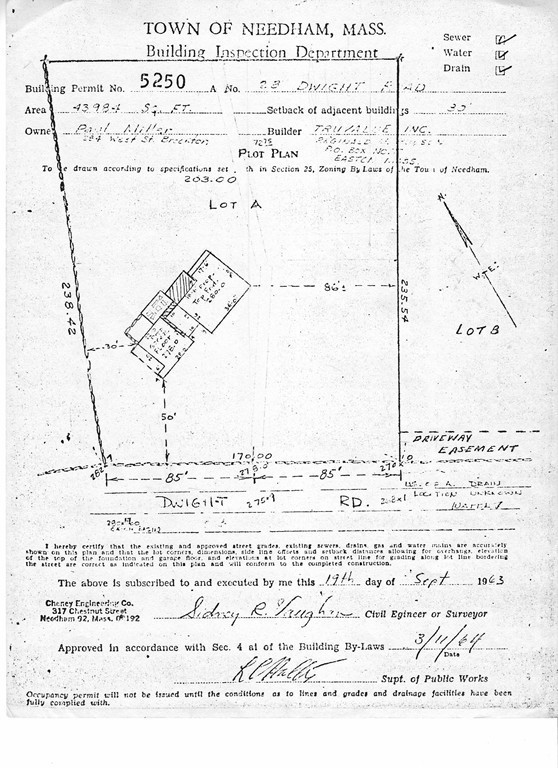 TOWN OF NEEDHAM, MASS.
Building Inspection Department
Sewer
Water
Drain
Building Permit No. 5250 At No. 28 DWIGHT ROAD
Area 43984 SQ. FT. Setback of adjacent buildings 35'
Owner Paul Miller Builder TRUVALUE INC.
284 West St. Brockton
PLOT PLAN
P.O. BOX NO.
EASTON MASS.
To be drawn according to specifications set forth in Section 25, Zoning By Laws of the Town of Needham.
203.00
LOT A
N
W.T.E.
238.42
235.54
86'±
LOT B
30'
50'
DRIVEWAY
EASEMENT
170.00
85' 85'
DWIGHT RD.
DRAIN
LOCATION UNKNOWN
I hereby certify that the existing and approved street grades, existing sewers, drains, gas and water mains are accurately
shown on this plan and that the lot corners, dimensions, side line offsets and setback distances allowing for overhangs, elevation
of the top of the foundation and garage floor, and elevations at lot corners on street line for grading along lot line bordering
the street are correct as indicated on this plan and will conform to the completed construction.
The above is subscribed to and executed by me this 19th day of Sept 1963
Cheney Engineering Co.
317 Chestnut Street
Needham 92, Mass.
Sidney R. Vaughan Civil Egineer or Surveyor
Approved in accordance with Sec. 4 al of the Building By-Laws 3/11/64
Date
Supt. of Public Works
Occupancy permit will not be issued until the conditions as to lines and grades and drainage facilities have been
fully complied with.